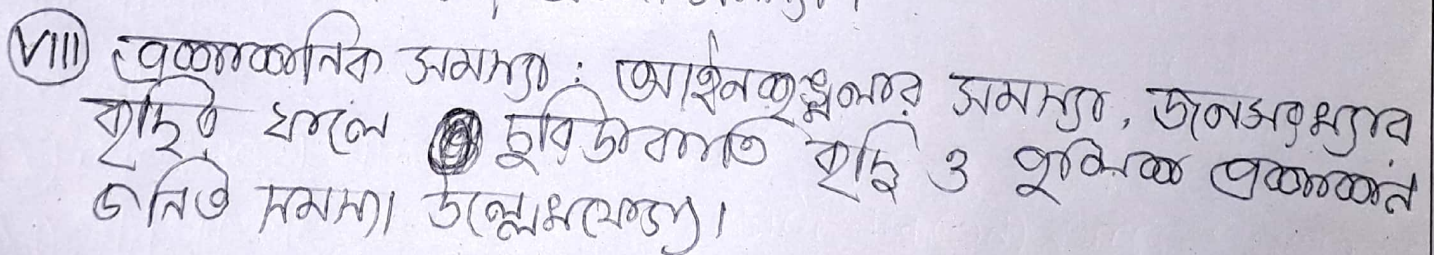 (VIII) প্রশাসনিক সমস্যা : আইনশৃঙ্খলার সমস্যা, জনসংখ্যার
বৃদ্ধির ফলে চুরিডাকাতি বৃদ্ধি ও পুলিশ প্রশাসন
জনিত সমস্যা উল্লেখযোগ্য।